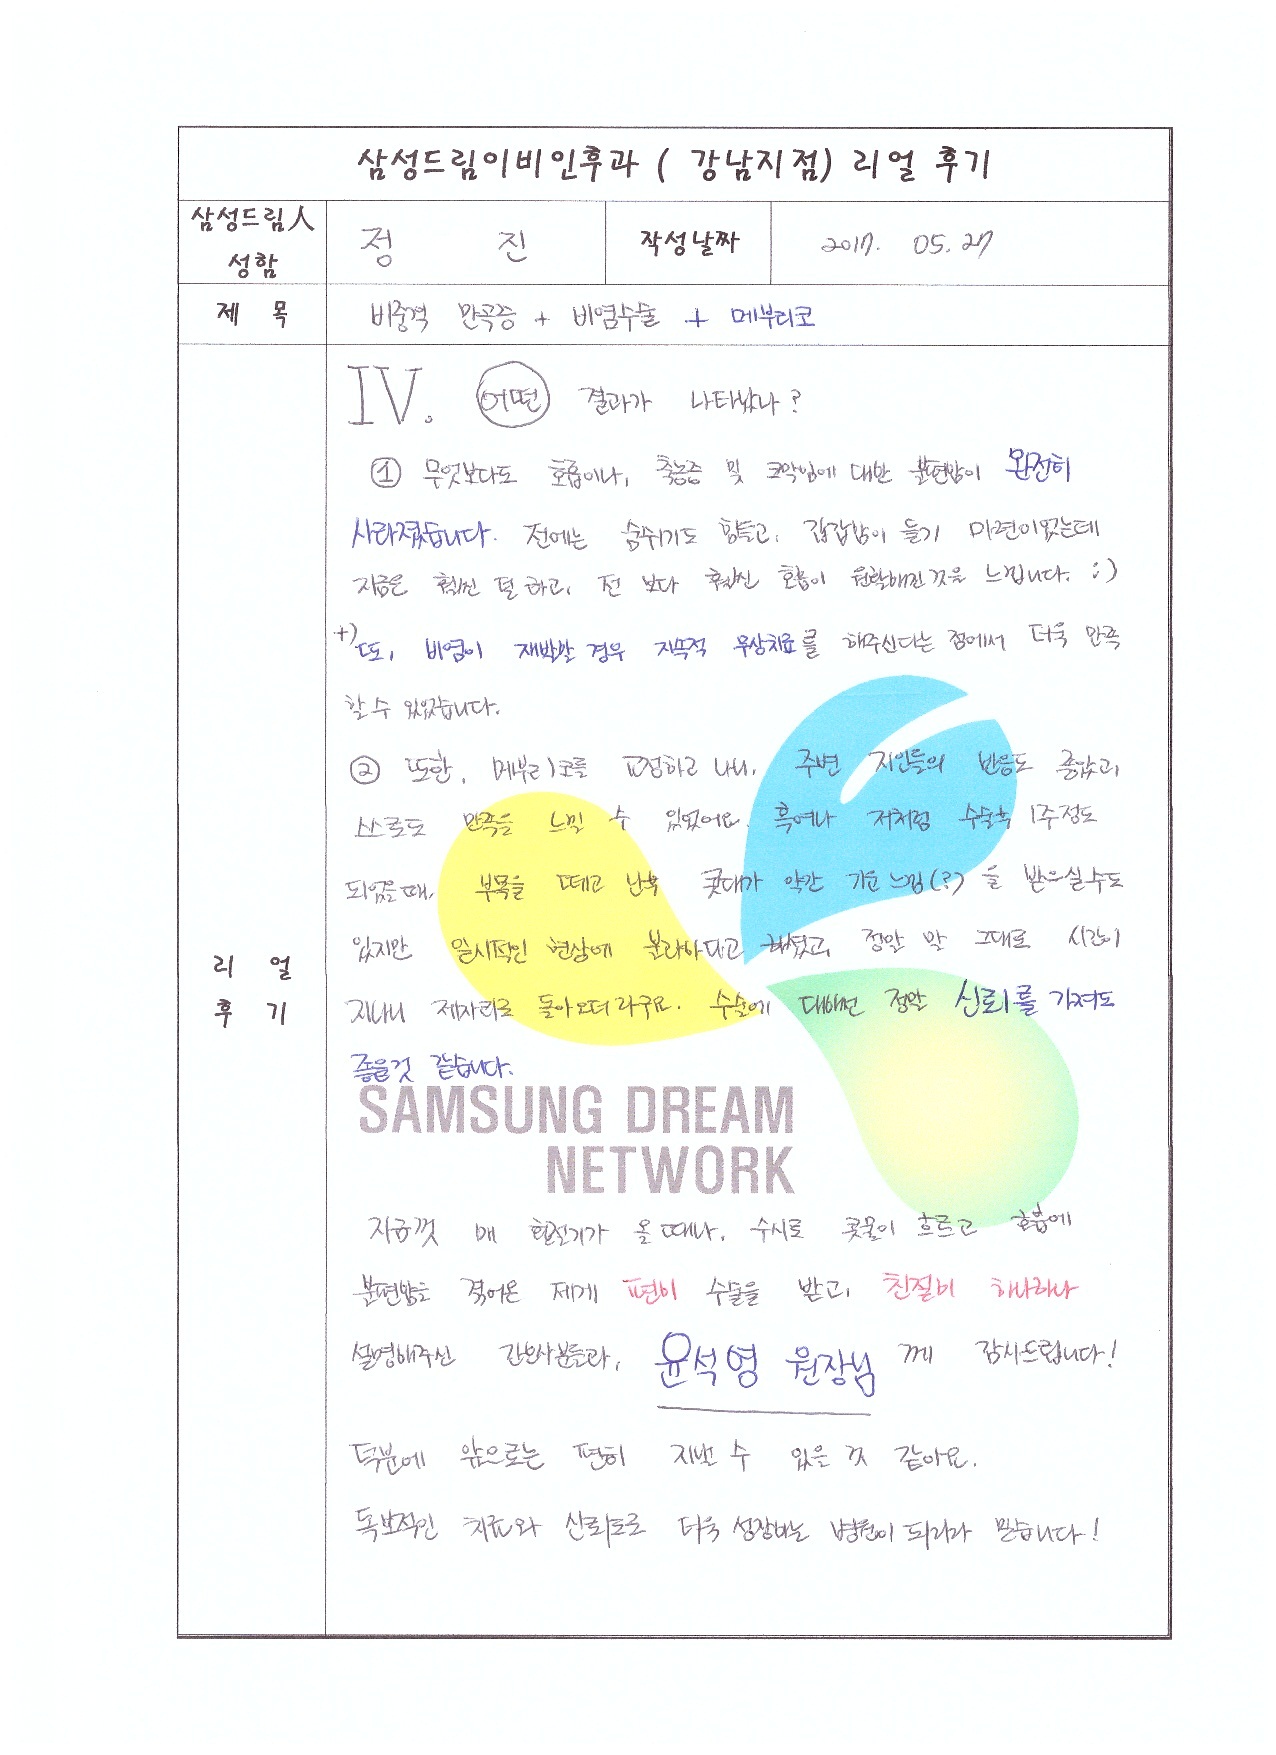 삼성드림이비인후과 ( 강남지점) 리얼 후기
삼성드림人 성함
정 진
작성날짜
2017. 05. 27
제 목
비중격 만곡증 + 비염수술 + 메부리코
리 얼 후 기
IV. 어떤 결과가 나타났나?
① 무엇보다도 호흡이나, 축농증 및 코막임에 대한 불편함이 완전히
사라졌습니다. 전에는 숨쉬기도 힘들고, 갑갑함이 들기 마련이었는데
지금은 훨씬 덜 하고, 전 보다 훨씬 호흡이 원활해진것을 느낍니다. :)
+) 또, 비염이 재발할 경우 지속적 무상치료를 해주신다는 점에서 더욱 만족
할 수 있었습니다.
② 또한, 메부리코를 교정하고 나니, 주변 지인들의 반응도 좋았고,
스스로도 만족을 느낄 수 있었어요. 혹여나 저처럼 수술후 1주정도
되었을때, 부목을 떼고 난후 콧대가 약간 기운 느낌(?)을 받으실수도
있지만 일시적인 현상에 불과하다고 하셨고, 정말 말 그대로 시간이
지나니 제자리로 돌아오더라구요. 수술에 대해선 정말 신뢰를 가져도
좋을것 같습니다.
SAMSUNG DREAM
NETWORK
지금껏 매 환절기가 올 때마다, 수시로 콧물이 흐르고 호흡에
불편함을 겪어온 제게 편히 수술을 받고, 친절히 하나하나
설명해주신 간호사분들과, 윤석영 원장님 께 감사드립니다!
덕분에 앞으로는 편히 지낼 수 있을 것 같아요.
독보적인 치료와 신뢰도로 더욱 성장하는 병원이 되리라 믿습니다!